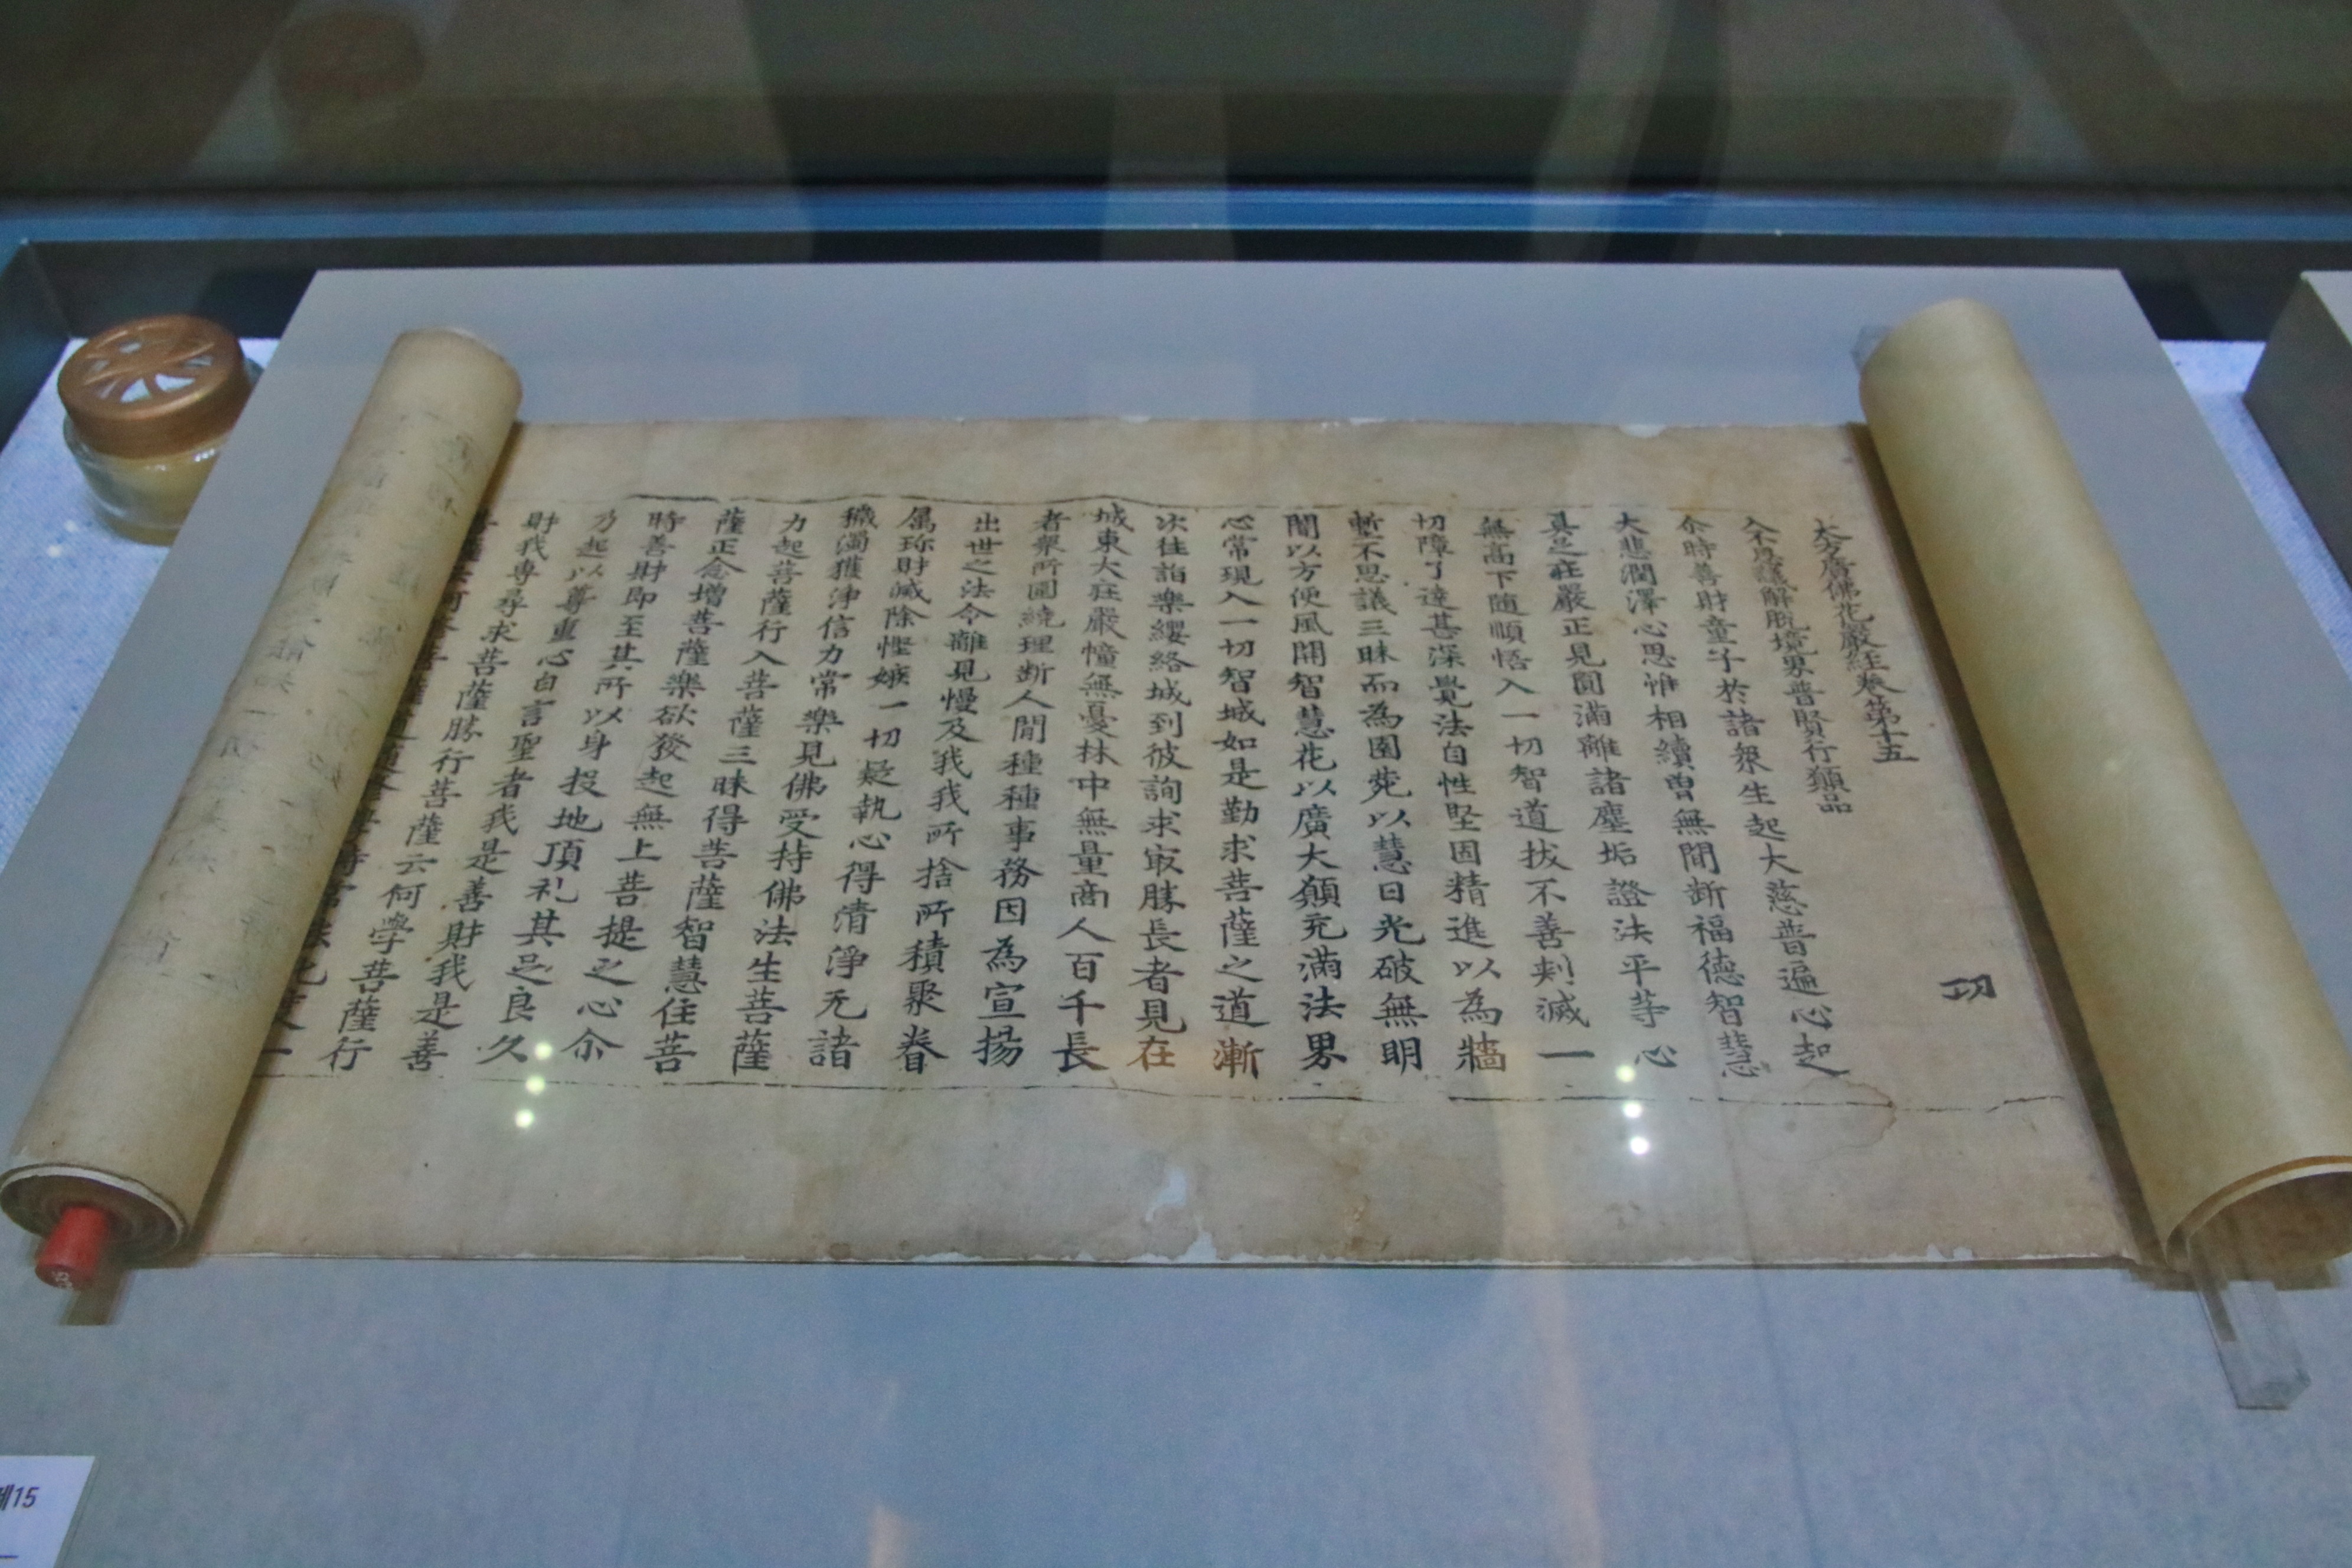 大方廣佛花嚴經卷第十五
入不思議解脫境界普賢行願品
尒時善財童子於諸衆生起大慈普遍心起
大悲潤澤心思惟相續曾無間断福德智慧
具足莊嚴正見圓滿離諸塵垢證法平等心
無高下随順悟入一切智道拔不善刺滅一
切障了達甚深覺法自性堅固精進以為牆
塹不思議三昧而為園菀以慧日光破無明
闇以方便風開智慧花以廣大願充滿法界
心常現入一切智城如是勤求菩薩之道漸
次往詣樂纓絡城到彼詢求㝡勝長者見在
城東大莊嚴幢無憂林中無量商人百千長
者衆所圍繞理断人間種種事務因為宣揚
出世之法令離見慢及我我所捨所積聚眷
属珎財滅除慳嫉一切疑執心得清淨无諸
穢濁獲淨信力常樂見佛受持佛法生菩薩
力起菩薩行入菩薩三昧得菩薩智慧住菩
薩正念增菩薩樂欲發起無上菩提之心尒
時善財即至其所以身投地頂礼其足良久
乃起以尊重心自言聖者我是善財我是善
財我専尋求菩薩勝行菩薩云何學菩薩行
㓛
제15